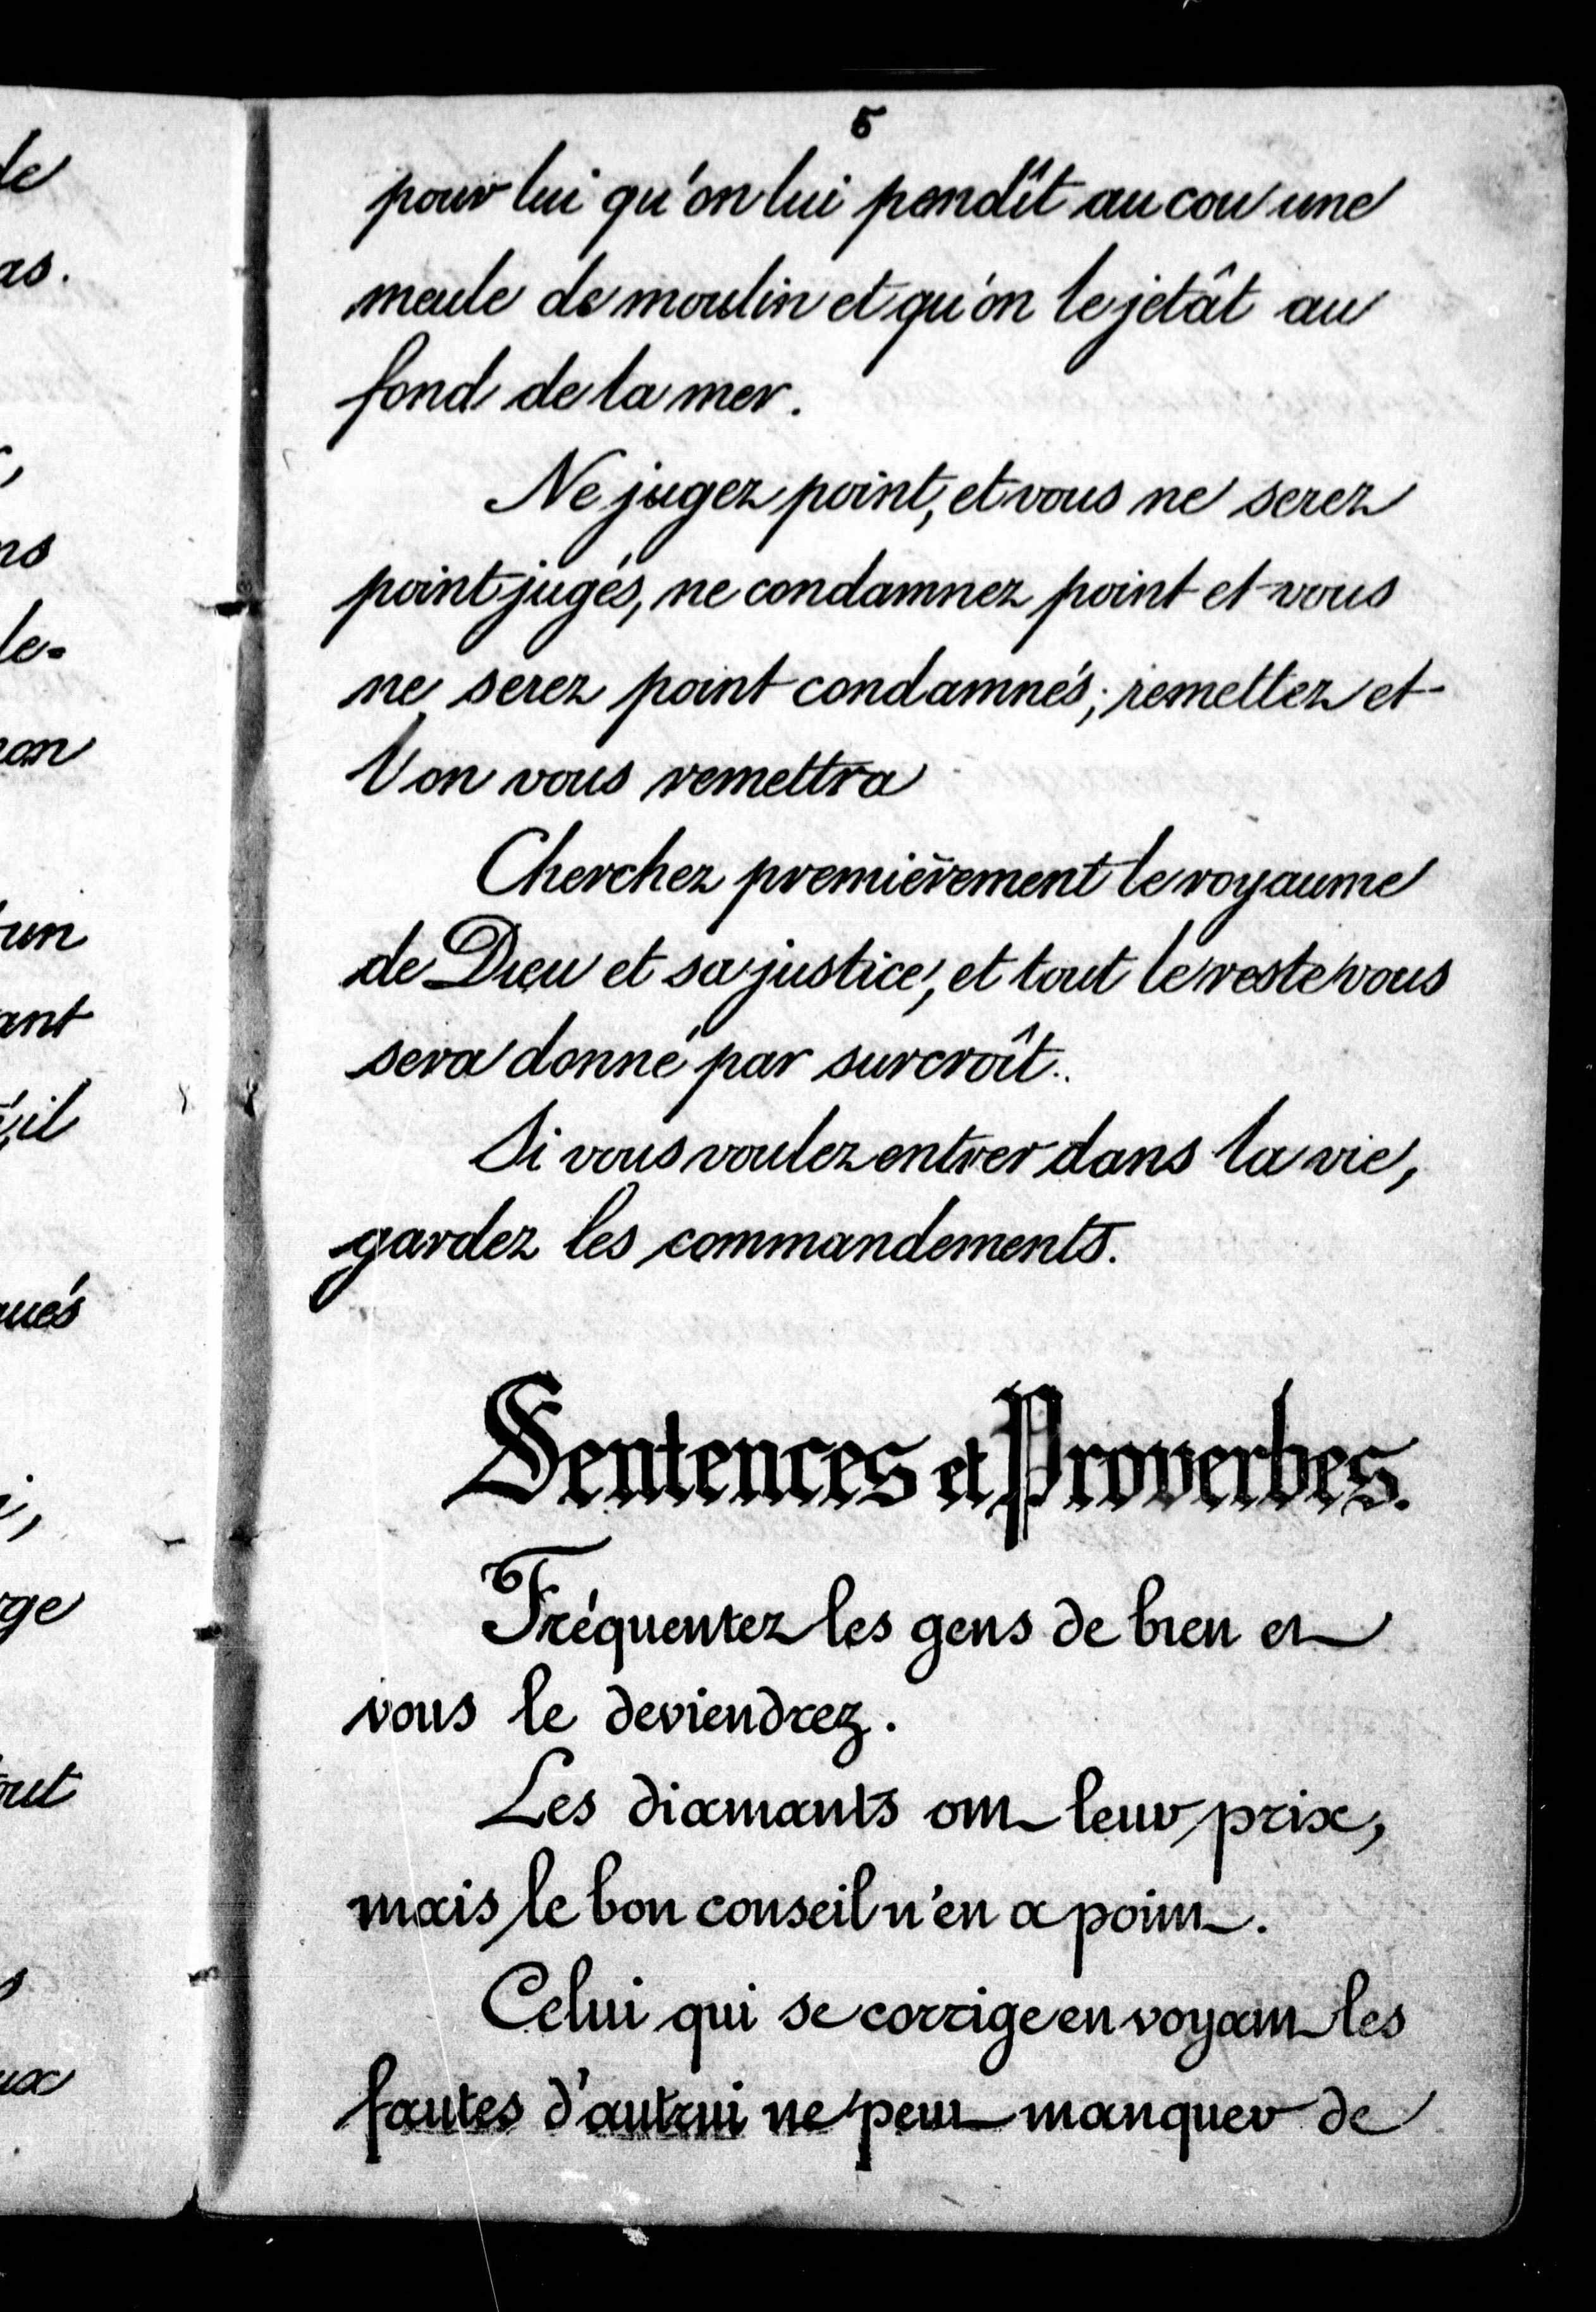 de
as.
ns
le-
on
un
ant
il
ués
ge
out
ux
5
pour lui qu'on lui pendît au cou une
meule de moulin et qu'on le jetât au
fond de la mer.
Ne jugez point, et vous ne serez
point jugés, ne condamnez point et vous
ne serez point condamnés; remettez et
l'on vous remettra
Cherchez premièrement le royaume
de Dieu et sa justice, et tout le reste vous
sera donné par surcroît.
Si vous voulez entrer dans la vie,
gardez les commandements.
Sentences et Proverbes.
Fréquentez les gens de bien et
vous le deviendrez.
Les diamants ont leur prix,
mais le bon conseil n'en a point.
Celui qui se corrige en voyant les
fautes d'autrui ne peut manquer de